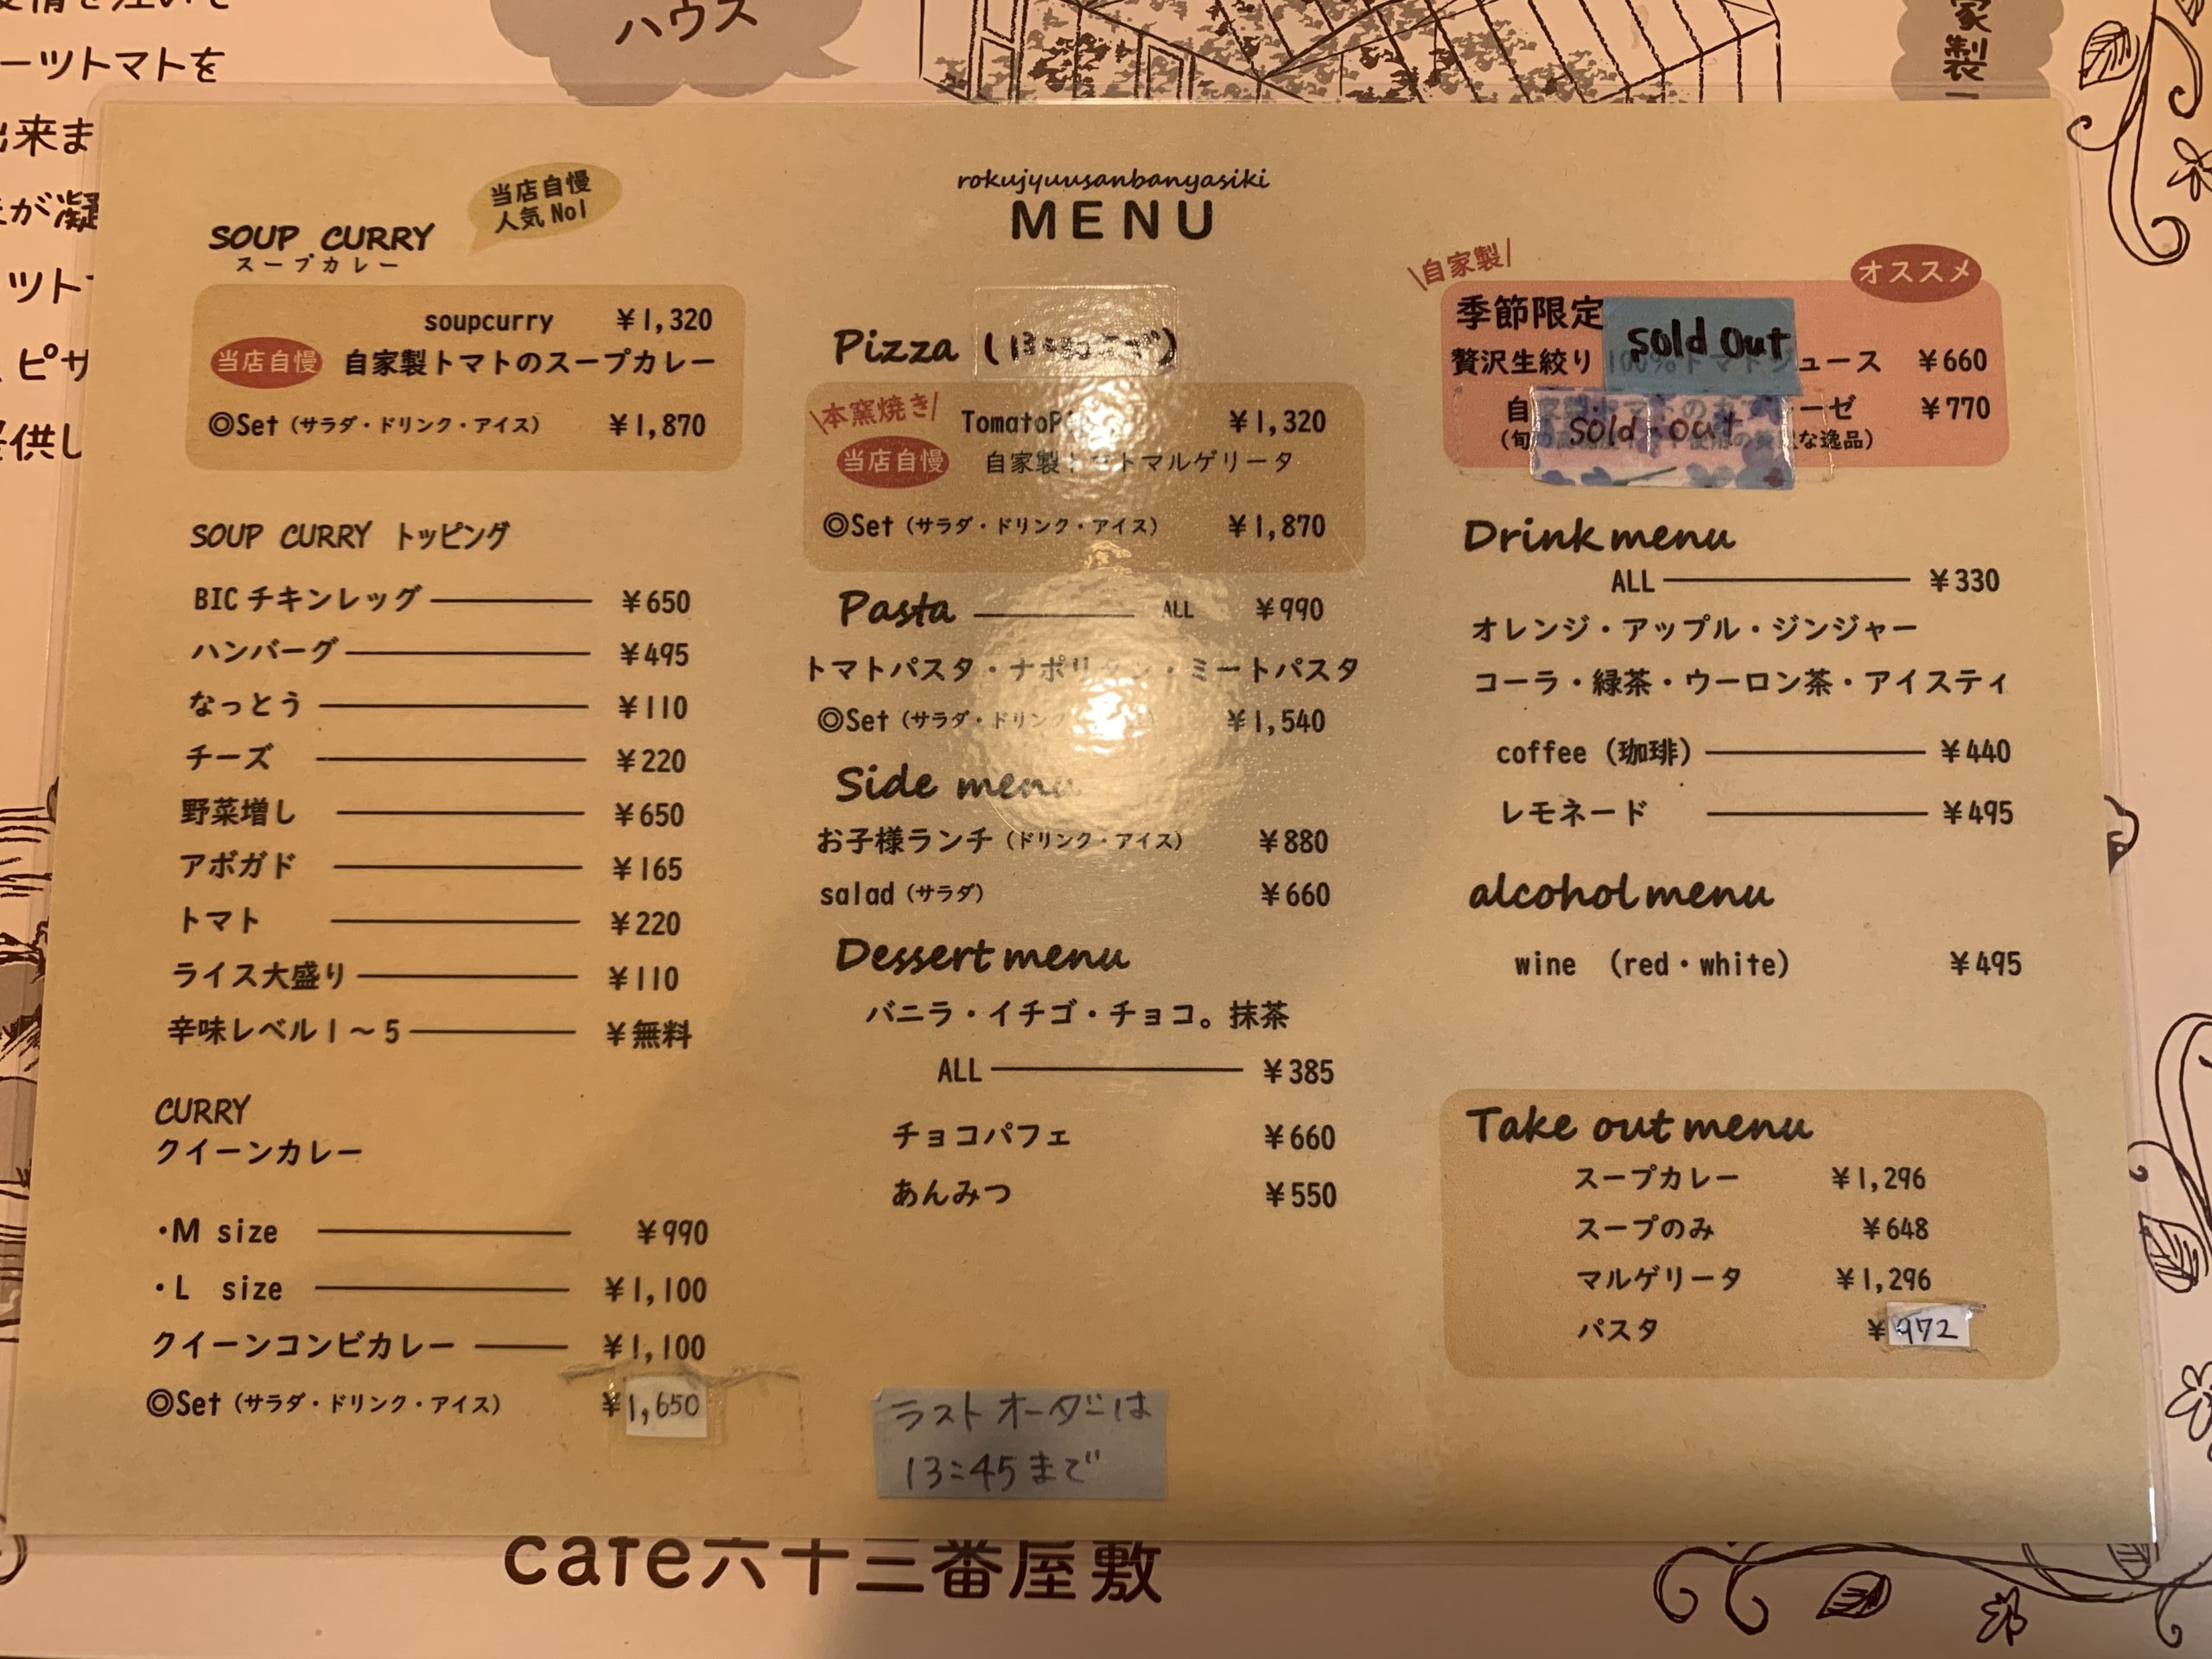 ハウス
ーツトマトを
出来ま
が凝
ツト
ピザ
供し
家製
rokujyuusanbanyasiki
MENU
当店自慢
人気 No1
SOUP CURRY
スープカレー
soupcurry ¥1,320
当店自慢 自家製トマトのスープカレー
◎Set（サラダ・ドリンク・アイス） ¥1,870
SOUP CURRY トッピング
BIC チキンレッグ ¥650
ハンバーグ ¥495
なっとう ¥110
チーズ ¥220
野菜増し ¥650
アボガド ¥165
トマト ¥220
ライス大盛り ¥110
辛味レベル1～5 ¥無料
CURRY
クイーンカレー
・M size ¥990
・L size ¥1,100
クイーンコンビカレー ¥1,100
◎Set（サラダ・ドリンク・アイス） ¥1,650
Pizza
本窯焼き
TomatoP ¥1,320
当店自慢 自家製トマトマルゲリータ
◎Set（サラダ・ドリンク・アイス） ¥1,870
Pasta ALL ¥990
トマトパスタ・ナポリタン・ミートパスタ
◎Set（サラダ・ドリンク ¥1,540
Side menu
お子様ランチ（ドリンク・アイス） ¥880
salad（サラダ） ¥660
Dessert menu
バニラ・イチゴ・チョコ。抹茶
ALL ¥385
チョコパフェ ¥660
あんみつ ¥550
ラストオーダーは
13:45まで
自家製
オススメ
季節限定
sold out
贅沢生絞り 100%トマトジュース ¥660
sold out
ーゼ ¥770
な逸品）
Drink menu
ALL ¥330
オレンジ・アップル・ジンジャー
コーラ・緑茶・ウーロン茶・アイスティ
coffee（珈琲） ¥440
レモネード ¥495
alcohol menu
wine （red・white） ¥495
Take out menu
スープカレー ¥1,296
スープのみ ¥648
マルゲリータ ¥1,296
パスタ ¥972
cafe六十三番屋敷